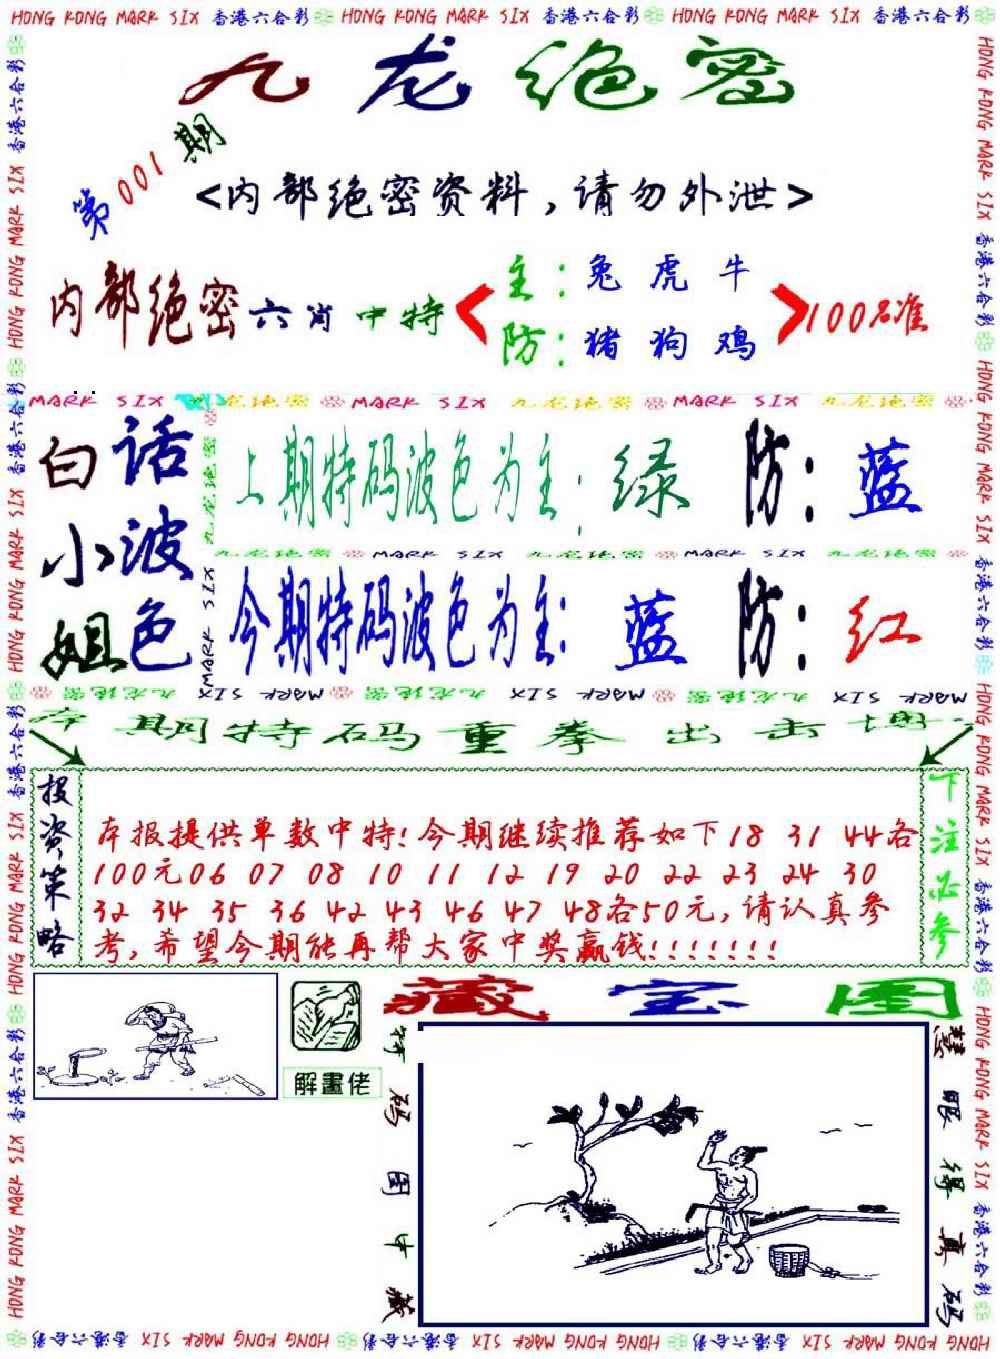 HONG KONG MARK SIX 香港六合彩 HONG KONG MARK SIX 香港六合彩 HONG KONG MARK SIX 香港六合彩
九龙绝密
第001期
<内部绝密资料,请勿外泄>
内部绝密六肖中特
主:兔 虎 牛
防:猪 狗 鸡
100%准
MARK SIX 九龙绝密 MARK SIX 九龙绝密 MARK SIX 九龙绝密
白话
小波
姐色
上期特码波色为主:绿 防:蓝
九龙绝密 MARK SIX 九龙绝密 MARK SIX 九龙绝密
今期特码波色为主:蓝 防:红
九龙绝密 MARK SIX 九龙绝密 MARK SIX 九龙绝密 MARK SIX
本期特码重拳出击
投资策略
本报提供单数中特!今期继续推荐如下18 31 44各
100元06 07 08 10 11 12 19 20 22 23 24 30
32 34 35 36 42 43 46 47 48各50元,请认真参
考,希望今期能再帮大家中奖赢钱!!!!!!!
下注必参
解畫佬
藏宝图
特码图中藏
慧眼得真码
HONG KONG MARK SIX 香港六合彩 HONG KONG MARK SIX 香港六合彩 HONG KONG MARK SIX 香港六合彩